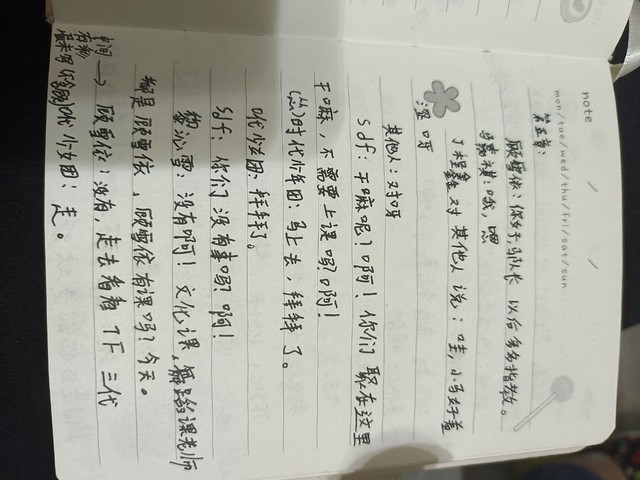 note
mon/tue/wed/thu/fri/sat/sun
第五章:
顾雪依:你好马队长 以后多多指教。
马嘉祺:哦,嗯
丁程鑫对其他人说:哇,小马好羞
涩呀
其他人:对呀
sdf:干嘛呢?啊!你们聚在这里
干嘛,不需要上课吗?啊!
(丛)时代少年团:马上去,拜拜了。
吹少女团:拜拜了。
sdf:你们没有事吗?啊!
黎沁雪:没有啊!文化课, 课老师
都是顾雪依,顾雪依有课吗?今天。
顾雪依:没有,走去看看TF三代
吹少女团:走。